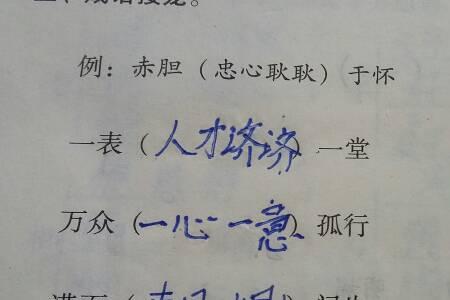 成语接龙。
例：赤胆（忠心耿耿）于怀
一表（人才济济）一堂
万众（一心一意）孤行
满面（